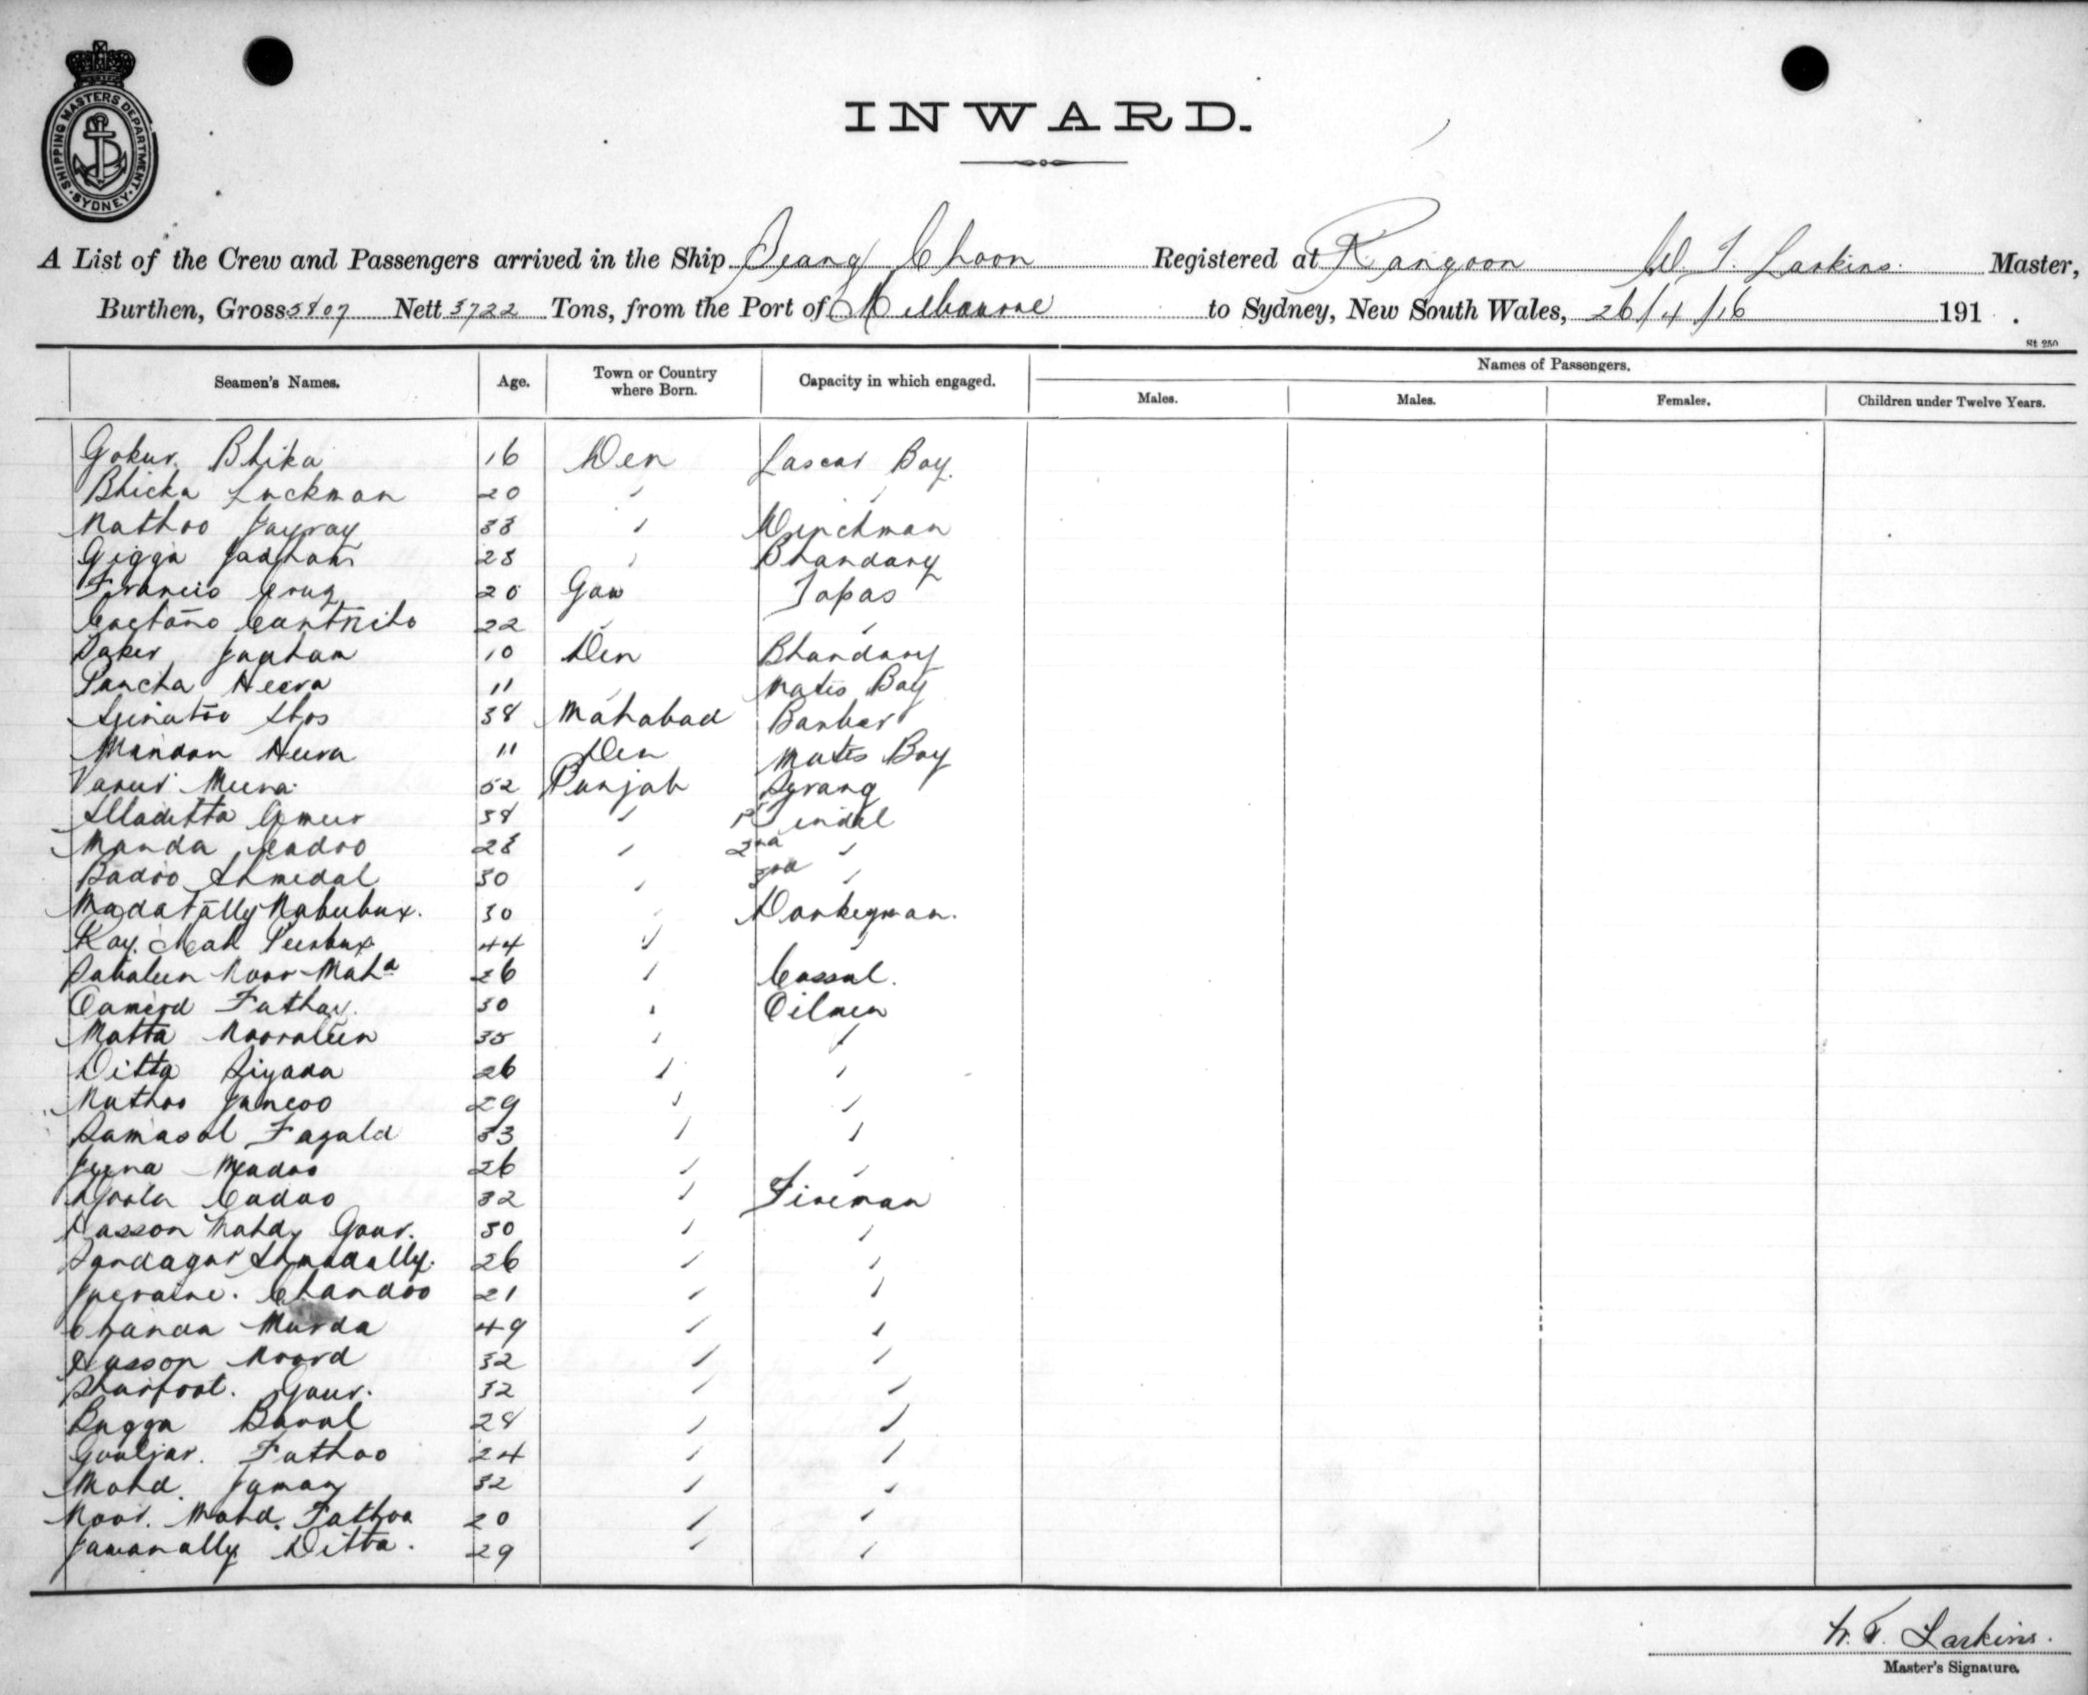 SHIPPING MASTERS DEPARTMENT
SYDNEY
INWARD.
A List of the Crew and Passengers arrived in the Ship Seang Choon Registered at Rangoon W. F. Larkins. Master,
Burthen, Gross 5807 Nett 3722 Tons, from the Port of Melbourne to Sydney, New South Wales, 26/4/16 191 .
St 250
Seamen's Names. Age. Town or Country where Born. Capacity in which engaged. Names of Passengers.
Males. Males. Females. Children under Twelve Years.
Gokur. Bhika 16 Den Lascar Boy.
Bhicka Luckman 20 " "
Nathoo Jayray 33 " Winchman
Gigga Jadhav 28 " Bhandary
Francis Cruz 20 Goa Topas
Caetano 22 " "
Daker Jagham 10 Den Bhandary
Pancha Heera 11 " Mates Boy
38 Mahabad Barber
Mandan Heera 11 Den Mates Boy
Vanur Meera 52 Punjab Serang
Alladitta Ameer 38 " 1st Tindal
Manda Cadoo 28 " 2nd "
Badoo Ahmedal 30 " 3rd "
Madatally Nabubux. 30 " Donkeyman.
Kay. Mah Peerbux 44 " "
Noor Mahd 26 " Cassal.
Fathay. 30 " Oilmen
Matta Nooraleen 35 " "
Ditta Ziyada 26 " "
Nathoo Jancoo 29 " "
Ramasal Fazald 33 " "
Jeena Madoo 26 " "
Cadoo 32 " Fireman
Hasson Mahd. Gour. 30 " "
Sandagar 26 " "
Chandoo 21 " "
Chanda Murda 49 " "
Hasson Noord 32 " "
Gour. 32 " "
Bagga Banal 28 " "
Gooljar. Fathoo 24 " "
Mohd. Jaman 32 " "
Noor. Mohd. Fathoo 20 " "
Jawanally Ditta. 29 " "
W. F. Larkins.
Master's Signature.